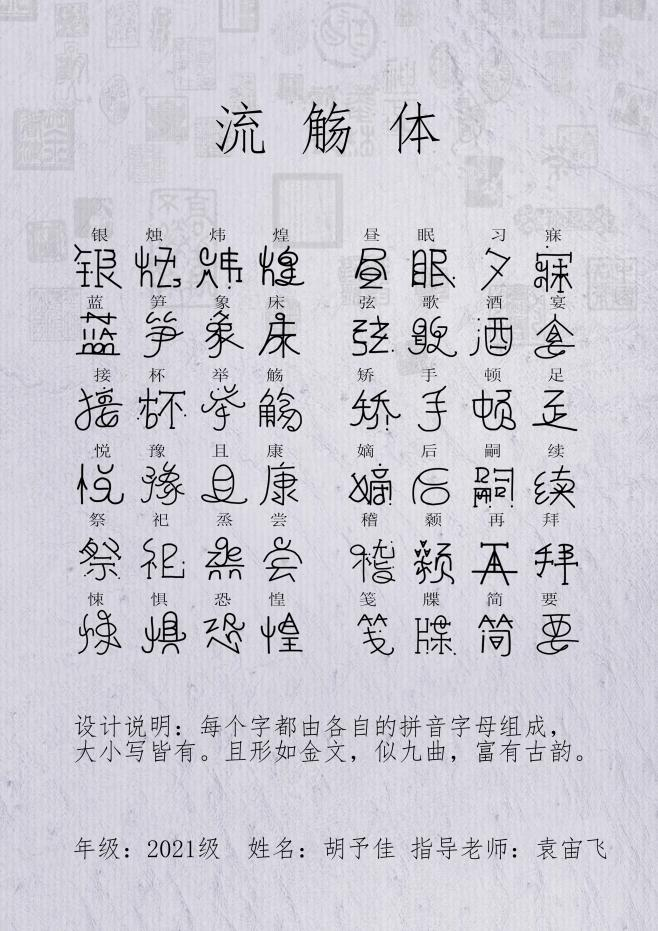 流觞体
银 烛 炜 煌 昼 眠 习 寐
银 烛 炜 煌 昼 眠 夕 寐
蓝 笋 象 床 弦 歌 酒 宴
蓝 笋 象 床 弦 歌 酒 宴
接 杯 举 觞 矫 手 顿 足
接 杯 举 觞 矫 手 顿 足
悦 豫 且 康 嫡 后 嗣 续
悦 豫 且 康 嫡 后 嗣 续
祭 祀 烝 尝 稽 颡 再 拜
祭 祀 烝 尝 稽 颡 再 拜
悚 惧 恐 惶 笺 牒 简 要
悚 惧 恐 惶 笺 牒 简 要
设计说明：每个字都由各自的拼音字母组成，
大小写皆有。且形如金文，似九曲，富有古韵。
年级：2021级 姓名：胡予佳 指导老师：袁宙飞